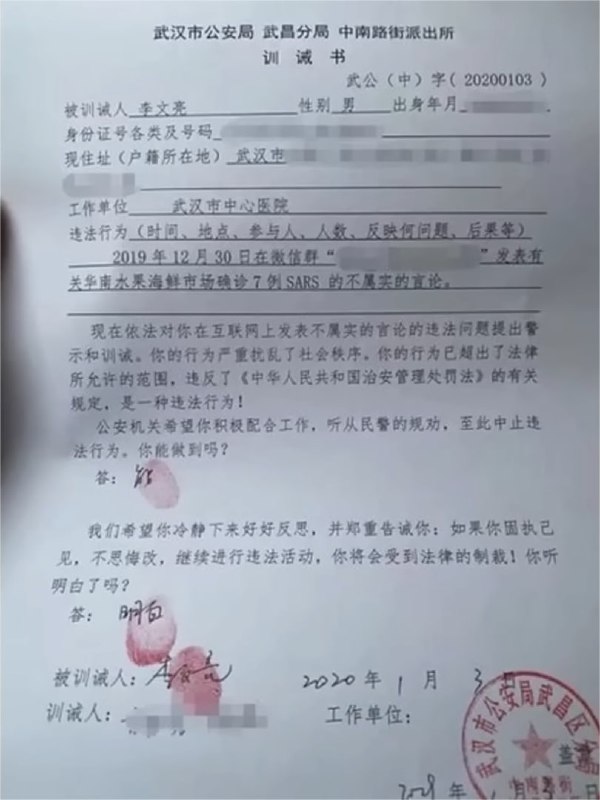 武汉市公安局 武昌分局 中南路街派出所
训 诫 书
武公（中）字（20200103）
被训诫人 李文亮 性别 男 出身年月
身份证号各类及号码
现住址（户籍所在地） 武汉市
工作单位 武汉市中心医院
违法行为（时间、地点、参与人、人数、反映何问题、后果等）
2019年12月30日在微信群“ ”发表有
关华南水果海鲜市场确诊7例SARS的不属实的言论。
现在依法对你在互联网上发表不属实的言论的违法问题提出警
示和训诫。你的行为严重扰乱了社会秩序。你的行为已超出了法律
所允许的范围，违反了《中华人民共和国治安管理处罚法》的有关
规定，是一种违法行为！
公安机关希望你积极配合工作，听从民警的规劝，至此中止违
法行为。你能做到吗？
答：能
我们希望你冷静下来好好反思，并郑重告诫你：如果你固执己
见，不思悔改，继续进行违法活动，你将会受到法律的制裁！你听
明白了吗？
答：明白
被训诫人：李文亮 2020年1月3日
训诫人： 工作单位：
武汉市公安局武昌区分局
中南路街
盖章
年 月 日